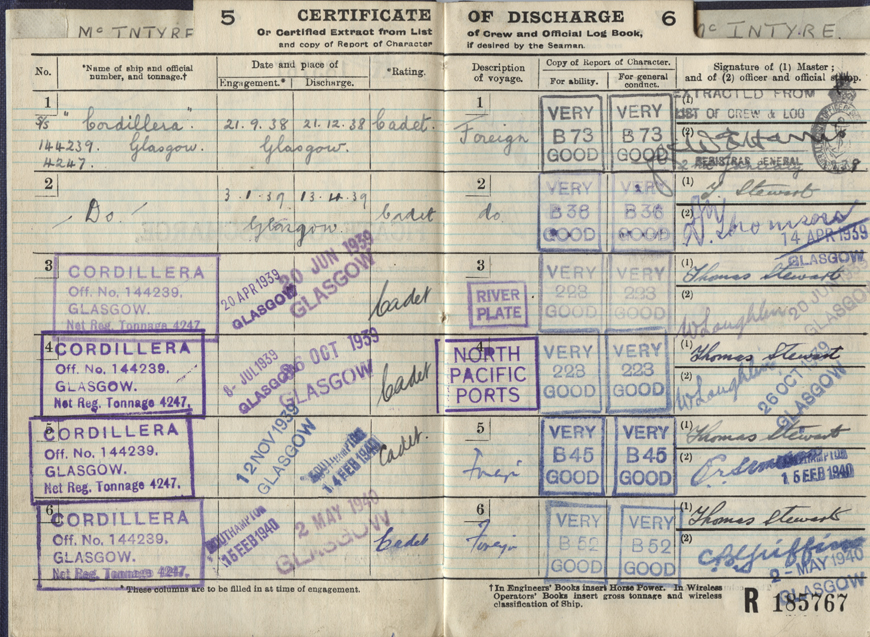 5 CERTIFICATE OF DISCHARGE 6
Mc INTYRE
Or Certified Extract from List of Crew and Official Log Book,
and copy of Report of Character if desired by the Seaman.
Mc INTYRE.
No. *Name of ship and official number, and tonnage.† Date and place of Engagement.* Discharge. *Rating. Description of voyage. Copy of Report of Character. For ability. For general conduct. Signature of (1) Master; and of (2) officer and official stamp.
1
S/S "Cordillera". 21.9.38 21.12.38 Cadet.
144239. Glasgow. Glasgow.
4247.
1
Foreign
VERY B73 GOOD
VERY B73 GOOD
(1)
EXTRACTED FROM
LIST OF CREW & LOG
(2)
REGISTRAR GENERAL
2
Do. 3.1.39 13.4.39 Cadet
Glasgow
2
do.
VERY B36 GOOD
VERY B36
(1) T. Stewart
(2) Thomson
14 APR 1939
GLASGOW
3
CORDILLERA
Off. No. 144239.
GLASGOW.
Net Reg. Tonnage 4247.
20 APR 1939
GLASGOW
20 JUN 1939
GLASGOW
Cadet
3
RIVER
PLATE
VERY 223 GOOD
VERY 223 GOOD
(1) Thomas Stewart
(2) W Loughlin
20 JUN 1939
GLASGOW
4
CORDILLERA
Off. No. 144239.
GLASGOW.
Net Reg. Tonnage 4247.
8- JUL 1939
GLASGOW
26 OCT 1939
GLASGOW
Cadet
4
NORTH
PACIFIC
PORTS
VERY 223 GOOD
VERY 223 GOOD
(1) Thomas Stewart
(2) W Loughlin
26 OCT 1939
GLASGOW
5
CORDILLERA
Off. No. 144239.
GLASGOW.
Net Reg. Tonnage 4247.
12 NOV 1939
GLASGOW
SOUTHAMPTON
14 FEB 1940
Cadet.
5
Foreign
VERY B45 GOOD
VERY B45 GOOD
(1) Thomas Stewart
(2)
SOUTHAMPTON
15 FEB 1940
6
CORDILLERA
Off. No. 144239.
GLASGOW.
Net Reg. Tonnage 4247.
SOUTHAMPTON
15 FEB 1940
2 MAY 1940
GLASGOW
Cadet
6
Foreign
VERY B52 GOOD
VERY B52 GOOD
(1) Thomas Stewart
(2) Griffin
2 - MAY 1940
GLASGOW
*These columns are to be filled in at time of engagement.
†In Engineers' Books insert Horse Power. In Wireless
Operators' Books insert gross tonnage and wireless
classification of Ship.
R 185767